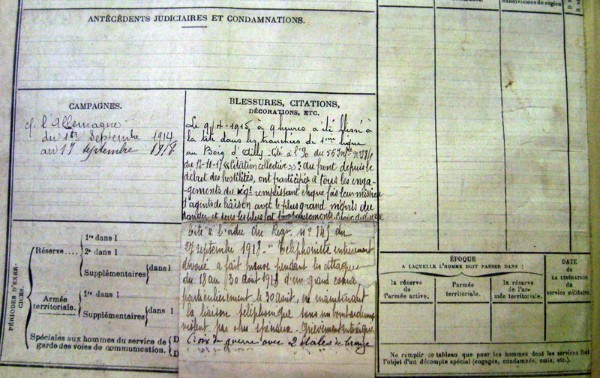 subdivisions de région
ANTÉCÉDENTS JUDICIAIRES ET CONDAMNATIONS.
CAMPAGNES.
c/ l'Allemagne
du 1er Septembre 1914
au 19 Septembre 1918
BLESSURES, CITATIONS,
DÉCORATIONS, ETC.
Le 9/4-1915 à 9 heures a été blessé à
la tête dans les tranchées de 1ère ligne
au Bois d'Ailly. Cité à l'O du
du 12-11-17 (Citation collective) du front depuis le
début des hostilités, ont participé à tous les enga-
gements du rég. remplissant chaque fois leur mission
d'agents de liaison avec le plus grand mépris du
danger et sous les plus
Cité à l'ordre du Régt. n° 145 du
27 septembre 1918. Téléphoniste entièrement
dévoué a fait preuve pendant les attaques
du 18 au 30 août 1918 d'un grand courage
particulièrement le 30 août, en maintenant
la liaison téléphonique sous un bombardement
Croix de guerre avec 2 étoiles de bronze
PÉRIODES D'EXERCICES
Réserve
1re dans l
2e dans l
Supplémentaires
dans l
Armée
territoriale.
1re dans l
Supplémentaires
dans l
Spéciales aux hommes du service de
garde des voies de communication.
D
D
ÉPOQUE
A LAQUELLE L'HOMME DOIT PASSER DANS :
la réserve
de
l'armée active.
l'armée
territoriale.
la réserve
de l'ar-
mée territoriale.
DATE
de
LA LIBÉRATION
du
service militaire.
Ne remplir ce tableau que pour les hommes dont les services font
l'objet d'un décompte spécial (engagés, condamnés, omis, etc.)